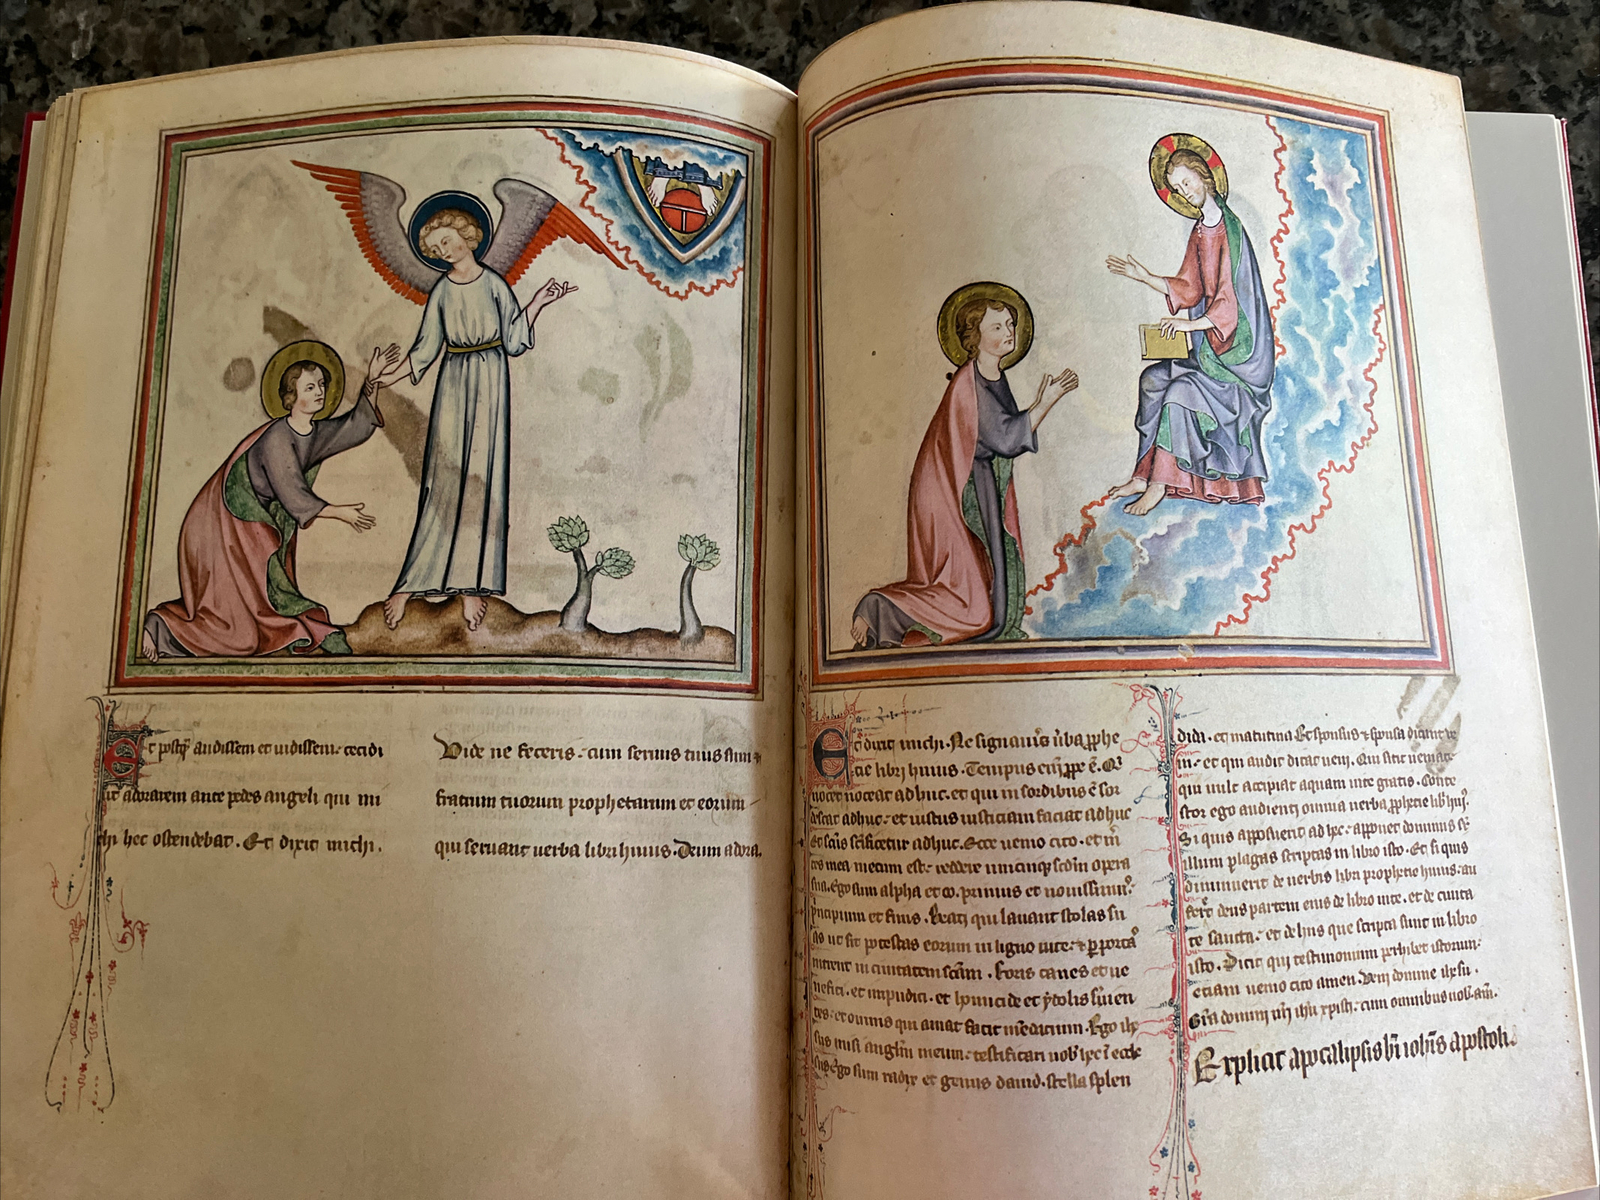 Et postq̄ audissem et uidissem: cecidi
ut adorarem ante pedes angeli qui mi
chi hec ostendebat. Et dixit michi.
Vide ne feceris: cum seruus tuus sum et
fratrum tuorum prophetarum et eorum
qui seruant uerba libri huius. Deum adora.
Et dixit michi. Ne signaueris uerba prophe
tie libri huius. Tempus enim prope est. Qui
nocet noceat adhuc. et qui in sordibus est sor
descat adhuc. et iustus iusticiam faciat adhuc
et scūs scīficetur adhuc. Ecce uenio cito. et m̄
ces mea mecum est. reddere unicuiqȝ scdm opera
sua. Ego sum alpha et ω. primus et nouissimus.
principium et finis. Beati qui lauant stolas su
as ut sit potestas eorum in ligno uite. et portis
intrent in ciuitatem scām. Foris canes et ue
nefici. et impudici. et homicide et ydolis seruien
tes. et omnis qui amat et facit mendacium. Ego ihs
misi anglm meum. testificari uob hec ī eccle
Ego sum radix et genus dauid. stella splen
dida. et matutina. Et sponsus et sponsa dicunt ve
ni. et qui audit dicat ueni. Qui sitit ueniat.
qui uult accipiat aquam uite gratis. Conte
stor ego audienti omnia uerba prophetie libri huius.
Si quis apposuerit ad hec. apponet dominus sr̄
illum plagas scriptas in libro isto. Et si quis
diminuerit de uerbis libri prophetie huius. au
feret deus partem eius de libro uite. et de ciuita
te sancta. et de hiis que scripta sunt in libro
isto. Dicit qui testimonium perhibet istorum.
etiam uenio cito amen. Veni domine ihū.
Grā domini nr̄i ihū xpisti. cum omnibus uob. am̄.
Explicit apocalipsis bī iohīs apostoli.